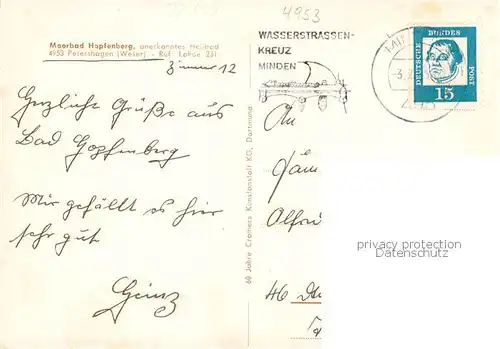 4953
Moorbad Hopfenberg, anerkanntes Heilbad
4953 Petershagen (Weser) - Ruf Lahde 281
Zimmer 12
Herzliche Grüße aus
Bad Hopfenberg
Mir gefällt es hier
sehr gut
Heinz
60 Jahre Cramers Kunstanstalt KG, Dortmund
WASSERSTRASSEN-
KREUZ
MINDEN
DEUTSCHE BUNDES POST
15
An
Fam
Alfred
46
privacy protection
Datenschutz